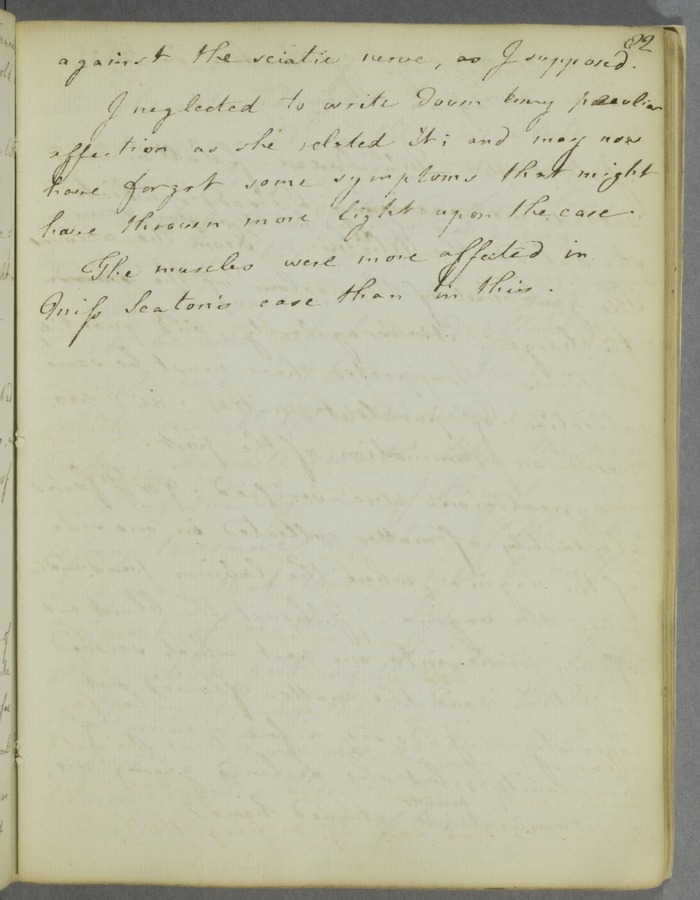 82
against the sciatic nerve, as I supposed.
I neglected to write down every peculiar
affection as she related it; and may now
have forgot some symptoms that might
have thrown more light upon the case.
The muscles were more affected in
Miss Seaton's case than in this.